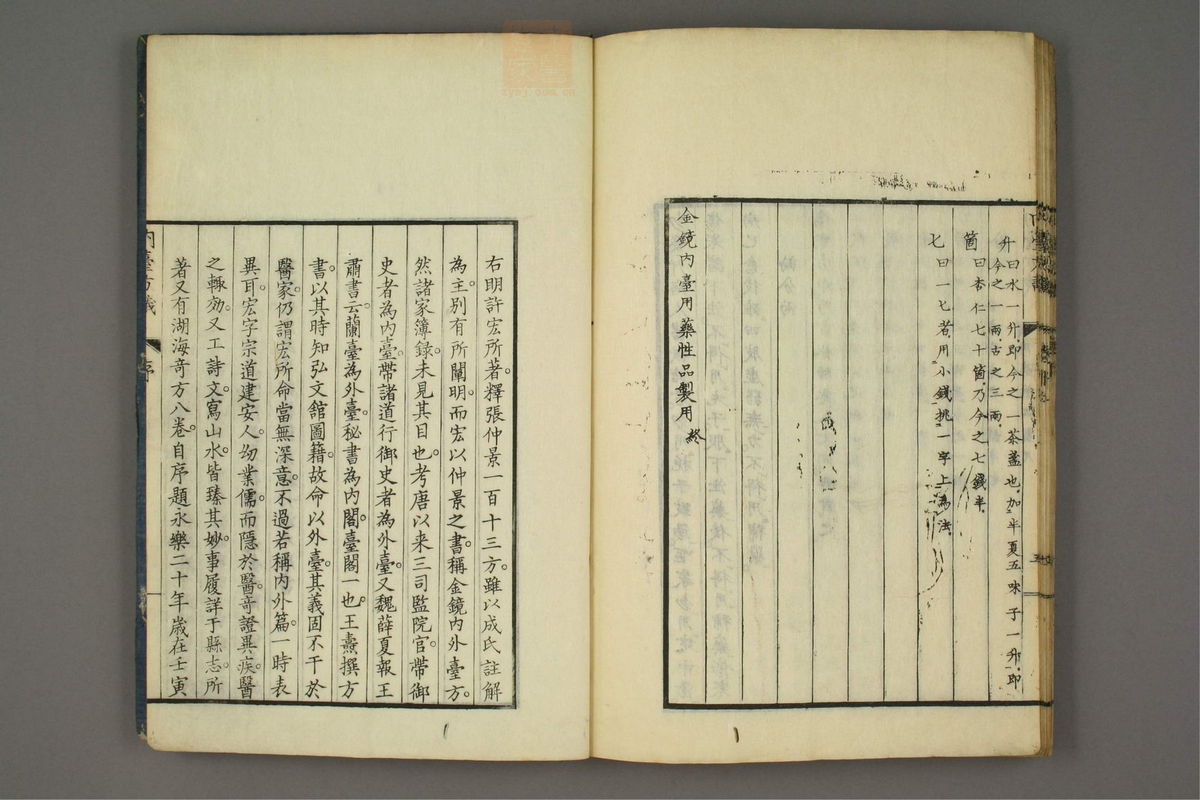 升曰水一升、即今之一茶盞也、加半夏五味子一升、即
今之一兩、古之三兩、
箇曰杏仁七十箇、乃今之七錢半、
匕曰一匕者、用小錢挑一字上為法、
金鏡內臺用藥性品製用 終
右明許宏所著。釋張仲景一百十三方。雖以成氏註解
為主。別有所闡明。而宏以仲景之書。稱金鏡內外臺方。
然諸家簿錄。未見其目也。考唐以来三司監院官。帶御
史者為內臺。帶諸道行御史者為外臺。又魏薛夏報王
肅書云。蘭臺為外臺。秘書為內閣。臺閣一也。王燾撰方
書。以其時知弘文館圖籍。故命以外臺。其義固不干於
醫家。仍謂宏所命當無深意。不過若稱內外篇。一時表
異耳。宏字宗道。建安人。幼業儒。而隱於醫。奇證異疾。醫
之輙効。又工詩文。寫山水。皆臻其妙。事履詳于縣志。所
著又有湖海奇方八卷。自序題永樂二十年歲在壬寅
內臺方議
序
zysj.com.cn